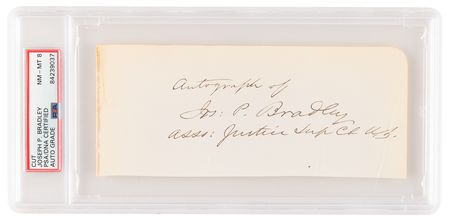 CUT
JOSEPH P. BRADLEY
PSA/DNA CERTIFIED
AUTO GRADE
NM - MT 8
84239037
Autograph of
Jos: P. Bradley
Asso: Justice Sup Ct U.S.